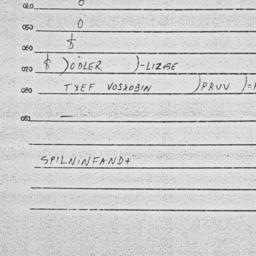 040 0
050 0
060 $
070 $ )ODLER )-LIZBE
080 TXEF VOSXOBIN )PRUV )=
081 —
SPILNINFAND+